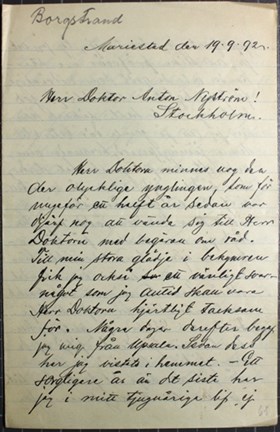 Borgstrand
Mariestad den 19.9.92.
Herr Doktor Anton Nyström!
Stockholm.
Herr Doktorn minnes nog den
der olycklige ynglingen, som för
ungefär ett halft år sedan var
djärf nog att vända sig till Herr
Doktorn med begäran om råd.
Till min stora glädje i bekymren
fick jag också ett vänligt svar
något som jag alltid skall vara
Herr Doktorn hjertligt tacksam
för. Några dagar derefter begaf
jag mig från Upsala. Sedan dess
har jag vistats i hemmet. – Ett
sorgligare år än det siste har
jag i mitt tjuguåriga lif ej